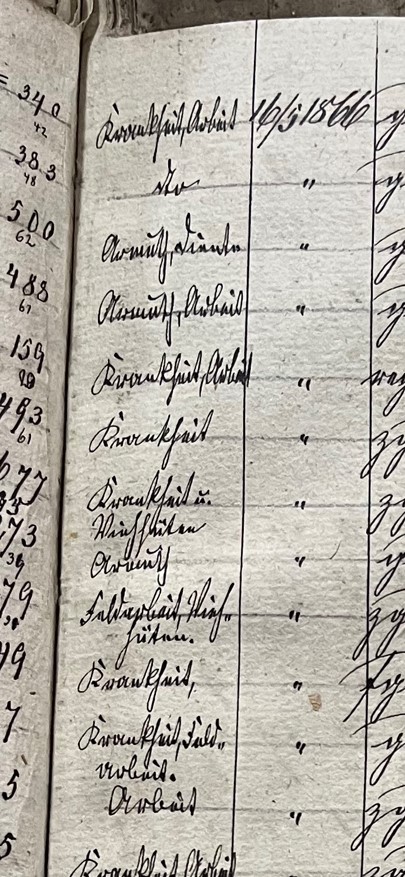 = 340
42
383
48
500
62
488
61
159
20
493
61
677
273
34
79
49
7
5
5
Krankheit, Arbeit 16/5 1866 g
dto " g
Armuth, Dienste " g
Armuth, Arbeit " g
Krankheit, Arbeit "
Krankheit " zg
Krankheit u. " z
Viehhüten
Armuth " g
Feldarbeit, Vieh- " zg
hüten.
Krankheit, " g
Krankheit, Feld- " g
arbeit.
Arbeit " zg
Krankheit, Arbeit